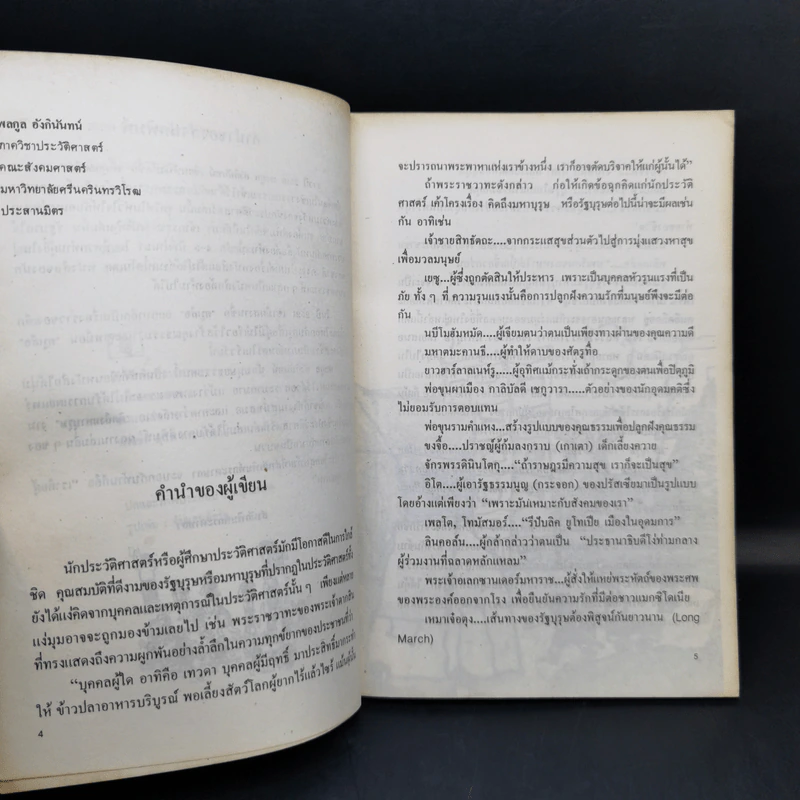 พลกูล อังกินันทน์
ภาควิชาประวัติศาสตร์
คณะสังคมศาสตร์
มหาวิทยาลัยศรีนครินทรวิโรฒ
ประสานมิตร
คำนำของผู้เขียน
นักประวัติศาสตร์หรือผู้ศึกษาประวัติศาสตร์มักมีโอกาสดีในการใกล้
ชิด คุณสมบัติที่ดีงามของรัฐบุรุษหรือมหาบุรุษที่ปรากฏในประวัติศาสตร์ทั้ง
ยังได้แง่คิดจากบุคคลและเหตุการณ์ในประวัติศาสตร์นั้น ๆ เพียงแต่หลาย
แง่มุมอาจจะถูกมองข้ามเลยไป เช่น พระราชวาทะของพระเจ้าตากสิน
ที่ทรงแสดงถึงความผูกพันอย่างล้ำลึกในความทุกข์ยากของประชาชนที่ว่า
“บุคคลผู้ใด อาทิคือ เทวดา บุคคลผู้มีฤทธิ์ มาประสิทธิ์มากระทำ
ให้ ข้าวปลาอาหารบริบูรณ์ พอเลี้ยงสัตว์โลกผู้ยากไร้แล้วไซร้ แม้นผู้นั้น
4
จะปรารถนาพระพาหาแห่งเราข้างหนึ่ง เราก็อาจตัดบริจาคให้แก่ผู้นั้นได้”
ถ้าพระราชวาทะดังกล่าว ก่อให้เกิดข้อฉุกคิดแก่นักประวัติ
ศาสตร์ เค้าโครงเรื่อง คิดถึงมหาบุรุษ หรือรัฐบุรุษต่อไปนี้น่าจะมีผลเช่น
กัน อาทิเช่น
เจ้าชายสิทธัตถะ....จากกระแสสุขส่วนตัวไปสู่การมุ่งแสวงหาสุข
เพื่อมวลมนุษย์
เยซู....ผู้ซึ่งถูกตัดสินให้ประหาร เพราะเป็นบุคคลหัวรุนแรงที่เป็น
ภัย ทั้ง ๆ ที่ ความรุนแรงนั้นคือการปลูกฝังความรักที่มนุษย์พึงจะมีต่อ
กัน
นบีโมฮัมหมัด....ผู้เชียมตนว่าตนเป็นเพียงทางผ่านของคุณความดี
มหาตมะคานธี....ผู้ทำให้ดาบของศัตรูทื่อ
ยาวฮาร์ลาลเนห์รู....ผู้อุทิศแม้กระทั่งเถ้ากระดูกของตนเพื่อปิตุภูมิ
พ่อขุนผาเมือง กาลิบัลดี เชกูวารา.....ตัวอย่างของนักอุดมคติซึ่ง
ไม่ยอมรับการตอบแทน
พ่อขุนรามคำแหง...สร้างรูปแบบของคุณธรรมเพื่อปลูกฝังคุณธรรม
ขงจื้อ....ปราชญ์ผู้ก้มลงกราบ (เกาเตา) เด็กเลี้ยงควาย
จักรพรรดินินโตกุ....“ถ้าราษฎรมีความสุข เราก็จะเป็นสุข”
อิโต....ผู้เอารัฐธรรมนูญ (กระจอก) ของปรัสเซียมาเป็นรูปแบบ
โดยอ้างแต่เพียงว่า “เพราะมันเหมาะกับสังคมของเรา”
เพลโต, โทมัสมอร์....“รีปับลิค ยูโทเปีย เมืองในอุดมการ”
ลินคอล์น....ผู้กล้ากล่าวว่าตนเป็น “ประธานาธิบดีโง่ท่ามกลาง
ผู้ร่วมงานที่ฉลาดหลักแหลม”
พระเจ้าอเลกซานเดอร์มหาราช....ผู้สั่งให้แหย่พระหัตถ์ของพระศพ
ของพระองค์ออกจากโรง เพื่อยืนยันความรักที่มีต่อชาวแมกซิโดเนีย
เหมาเจ๋อตุง....เส้นทางของรัฐบุรุษต้องพิสูจน์กันยาวนาน (Long
March)
5